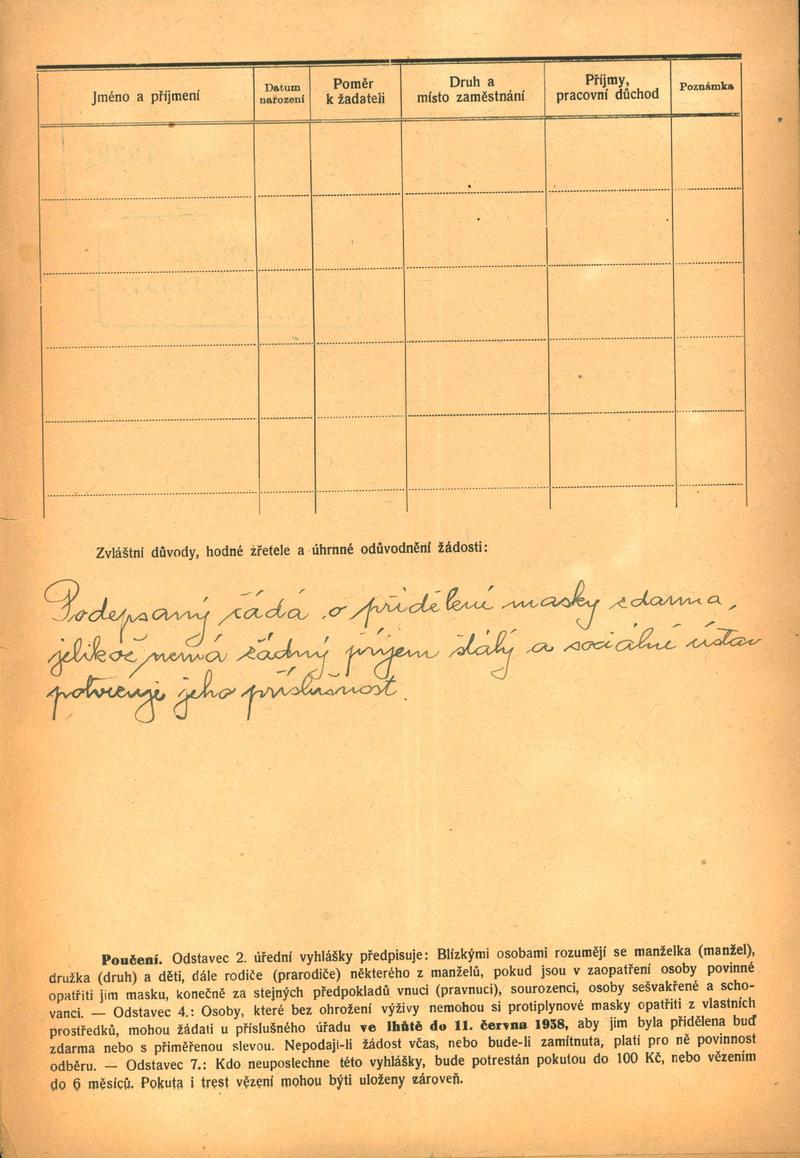 Jméno a příjmení
Datum
narození
Poměr
k žadateli
Druh a
místo zaměstnání
Příjmy,
pracovní důchod
Poznámka
Zvláštní důvody, hodné zřetele a úhrnné odůvodnění žádosti:
Podepsaný žádá o přidělení masky zdarma,
jelikož nemá žádný příjem stálý a sociální ústav
potvrzuje jeho příslušnost.
Poučení. Odstavec 2. úřední vyhlášky předpisuje: Blízkými osobami rozumějí se manželka (manžel),
družka (druh) a děti, dále rodiče (prarodiče) některého z manželů, pokud jsou v zaopatření osoby povinné
opatřiti jim masku, konečně za stejných předpokladů vnuci (pravnuci), sourozenci, osoby sešvakřené a scho-
vanci. — Odstavec 4.: Osoby, které bez ohrožení výživy nemohou si protiplynové masky opatřiti z vlastních
prostředků, mohou žádati u příslušného úřadu ve lhůtě do 11. června 1938, aby jim byla přidělena buď
zdarma nebo s přiměřenou slevou. Nepodají-li žádost včas, nebo bude-li zamítnuta, platí pro ně povinnost
odběru. — Odstavec 7.: Kdo neuposlechne této vyhlášky, bude potrestán pokutou do 100 Kč, nebo vězením
do 6 měsíců. Pokuta i trest vězení mohou býti uloženy zároveň.